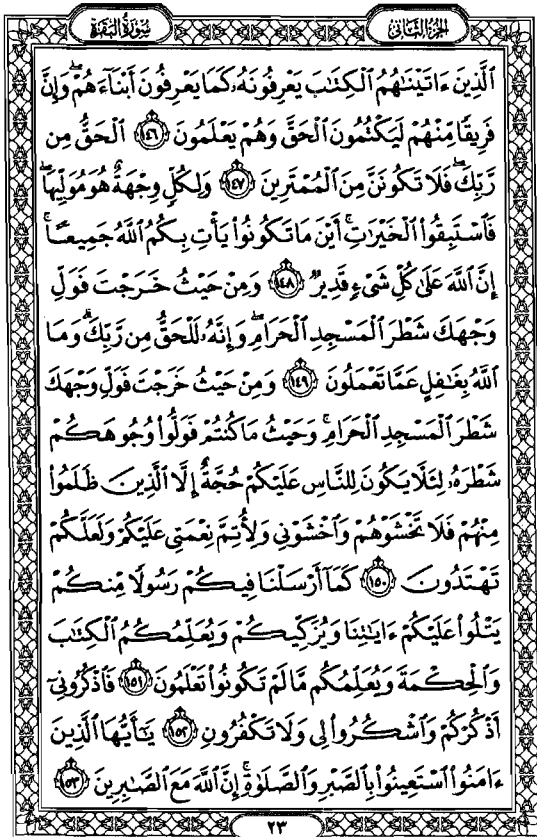 الجزء الثاني
سورة البقرة
الَّذِينَ ءَاتَيْنَاهُمُ الْكِتَابَ يَعْرِفُونَهُ كَمَا يَعْرِفُونَ أَبْنَاءَهُمْ وَإِنَّ
فَرِيقًا مِّنْهُمْ لَيَكْتُمُونَ الْحَقَّ وَهُمْ يَعْلَمُونَ ١٤٦ الْحَقُّ مِن
رَّبِّكَ فَلَا تَكُونَنَّ مِنَ الْمُمْتَرِينَ ١٤٧ وَلِكُلٍّ وِجْهَةٌ هُوَ مُوَلِّيهَا
فَاسْتَبِقُوا الْخَيْرَاتِ أَيْنَ مَا تَكُونُوا يَأْتِ بِكُمُ اللَّهُ جَمِيعًا
إِنَّ اللَّهَ عَلَىٰ كُلِّ شَىْءٍ قَدِيرٌ ١٤٨ وَمِنْ حَيْثُ خَرَجْتَ فَوَلِّ
وَجْهَكَ شَطْرَ الْمَسْجِدِ الْحَرَامِ وَإِنَّهُ لَلْحَقُّ مِن رَّبِّكَ وَمَا
اللَّهُ بِغَافِلٍ عَمَّا تَعْمَلُونَ ١٤٩ وَمِنْ حَيْثُ خَرَجْتَ فَوَلِّ وَجْهَكَ
شَطْرَ الْمَسْجِدِ الْحَرَامِ وَحَيْثُ مَا كُنتُمْ فَوَلُّوا وُجُوهَكُمْ
شَطْرَهُ لِئَلَّا يَكُونَ لِلنَّاسِ عَلَيْكُمْ حُجَّةٌ إِلَّا الَّذِينَ ظَلَمُوا
مِنْهُمْ فَلَا تَخْشَوْهُمْ وَاخْشَوْنِي وَلِأُتِمَّ نِعْمَتِي عَلَيْكُمْ وَلَعَلَّكُمْ
تَهْتَدُونَ ١٥٠ كَمَا أَرْسَلْنَا فِيكُمْ رَسُولًا مِّنكُمْ
يَتْلُوا عَلَيْكُمْ ءَايَاتِنَا وَيُزَكِّيكُمْ وَيُعَلِّمُكُمُ الْكِتَابَ
وَالْحِكْمَةَ وَيُعَلِّمُكُم مَّا لَمْ تَكُونُوا تَعْلَمُونَ ١٥١ فَاذْكُرُونِي
أَذْكُرْكُمْ وَاشْكُرُوا لِي وَلَا تَكْفُرُونِ ١٥٢ يَاأَيُّهَا الَّذِينَ
ءَامَنُوا اسْتَعِينُوا بِالصَّبْرِ وَالصَّلَوٰةِ إِنَّ اللَّهَ مَعَ الصَّابِرِينَ ١٥٣
٢٣